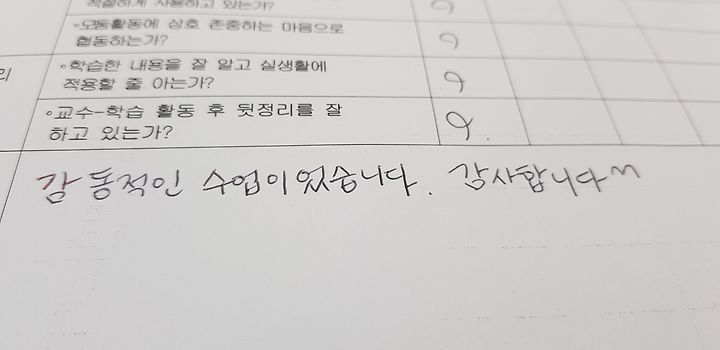 적절하게 사용하고 있는가?
◦모둠활동에 상호 존중하는 마음으로
협동하는가?
리
◦학습한 내용을 잘 알고 실생활에
적용할 줄 아는가?
◦교수-학습 활동 후 뒷정리를 잘
하고 있는가?
감동적인 수업이었습니다. 감사합니다~